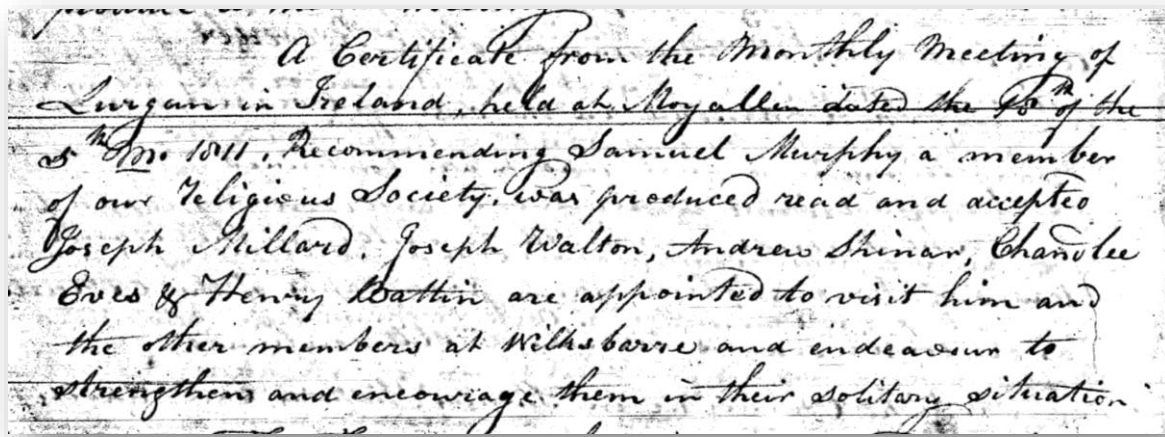 A Certificate from the Monthly Meeting of
Lurgan in Ireland, held at Moyallen dated the of the
5th Mo 1811, Recommending Samuel Murphy a member
of our religious Society, was produced read and accepted
Joseph Millard, Joseph Walton, Andrew Shinar, Chandlee
Eves & Henry are appointed to visit him and
the other members at Wilksbarre and endeavour to
strengthen and encourage them in their solitary situation